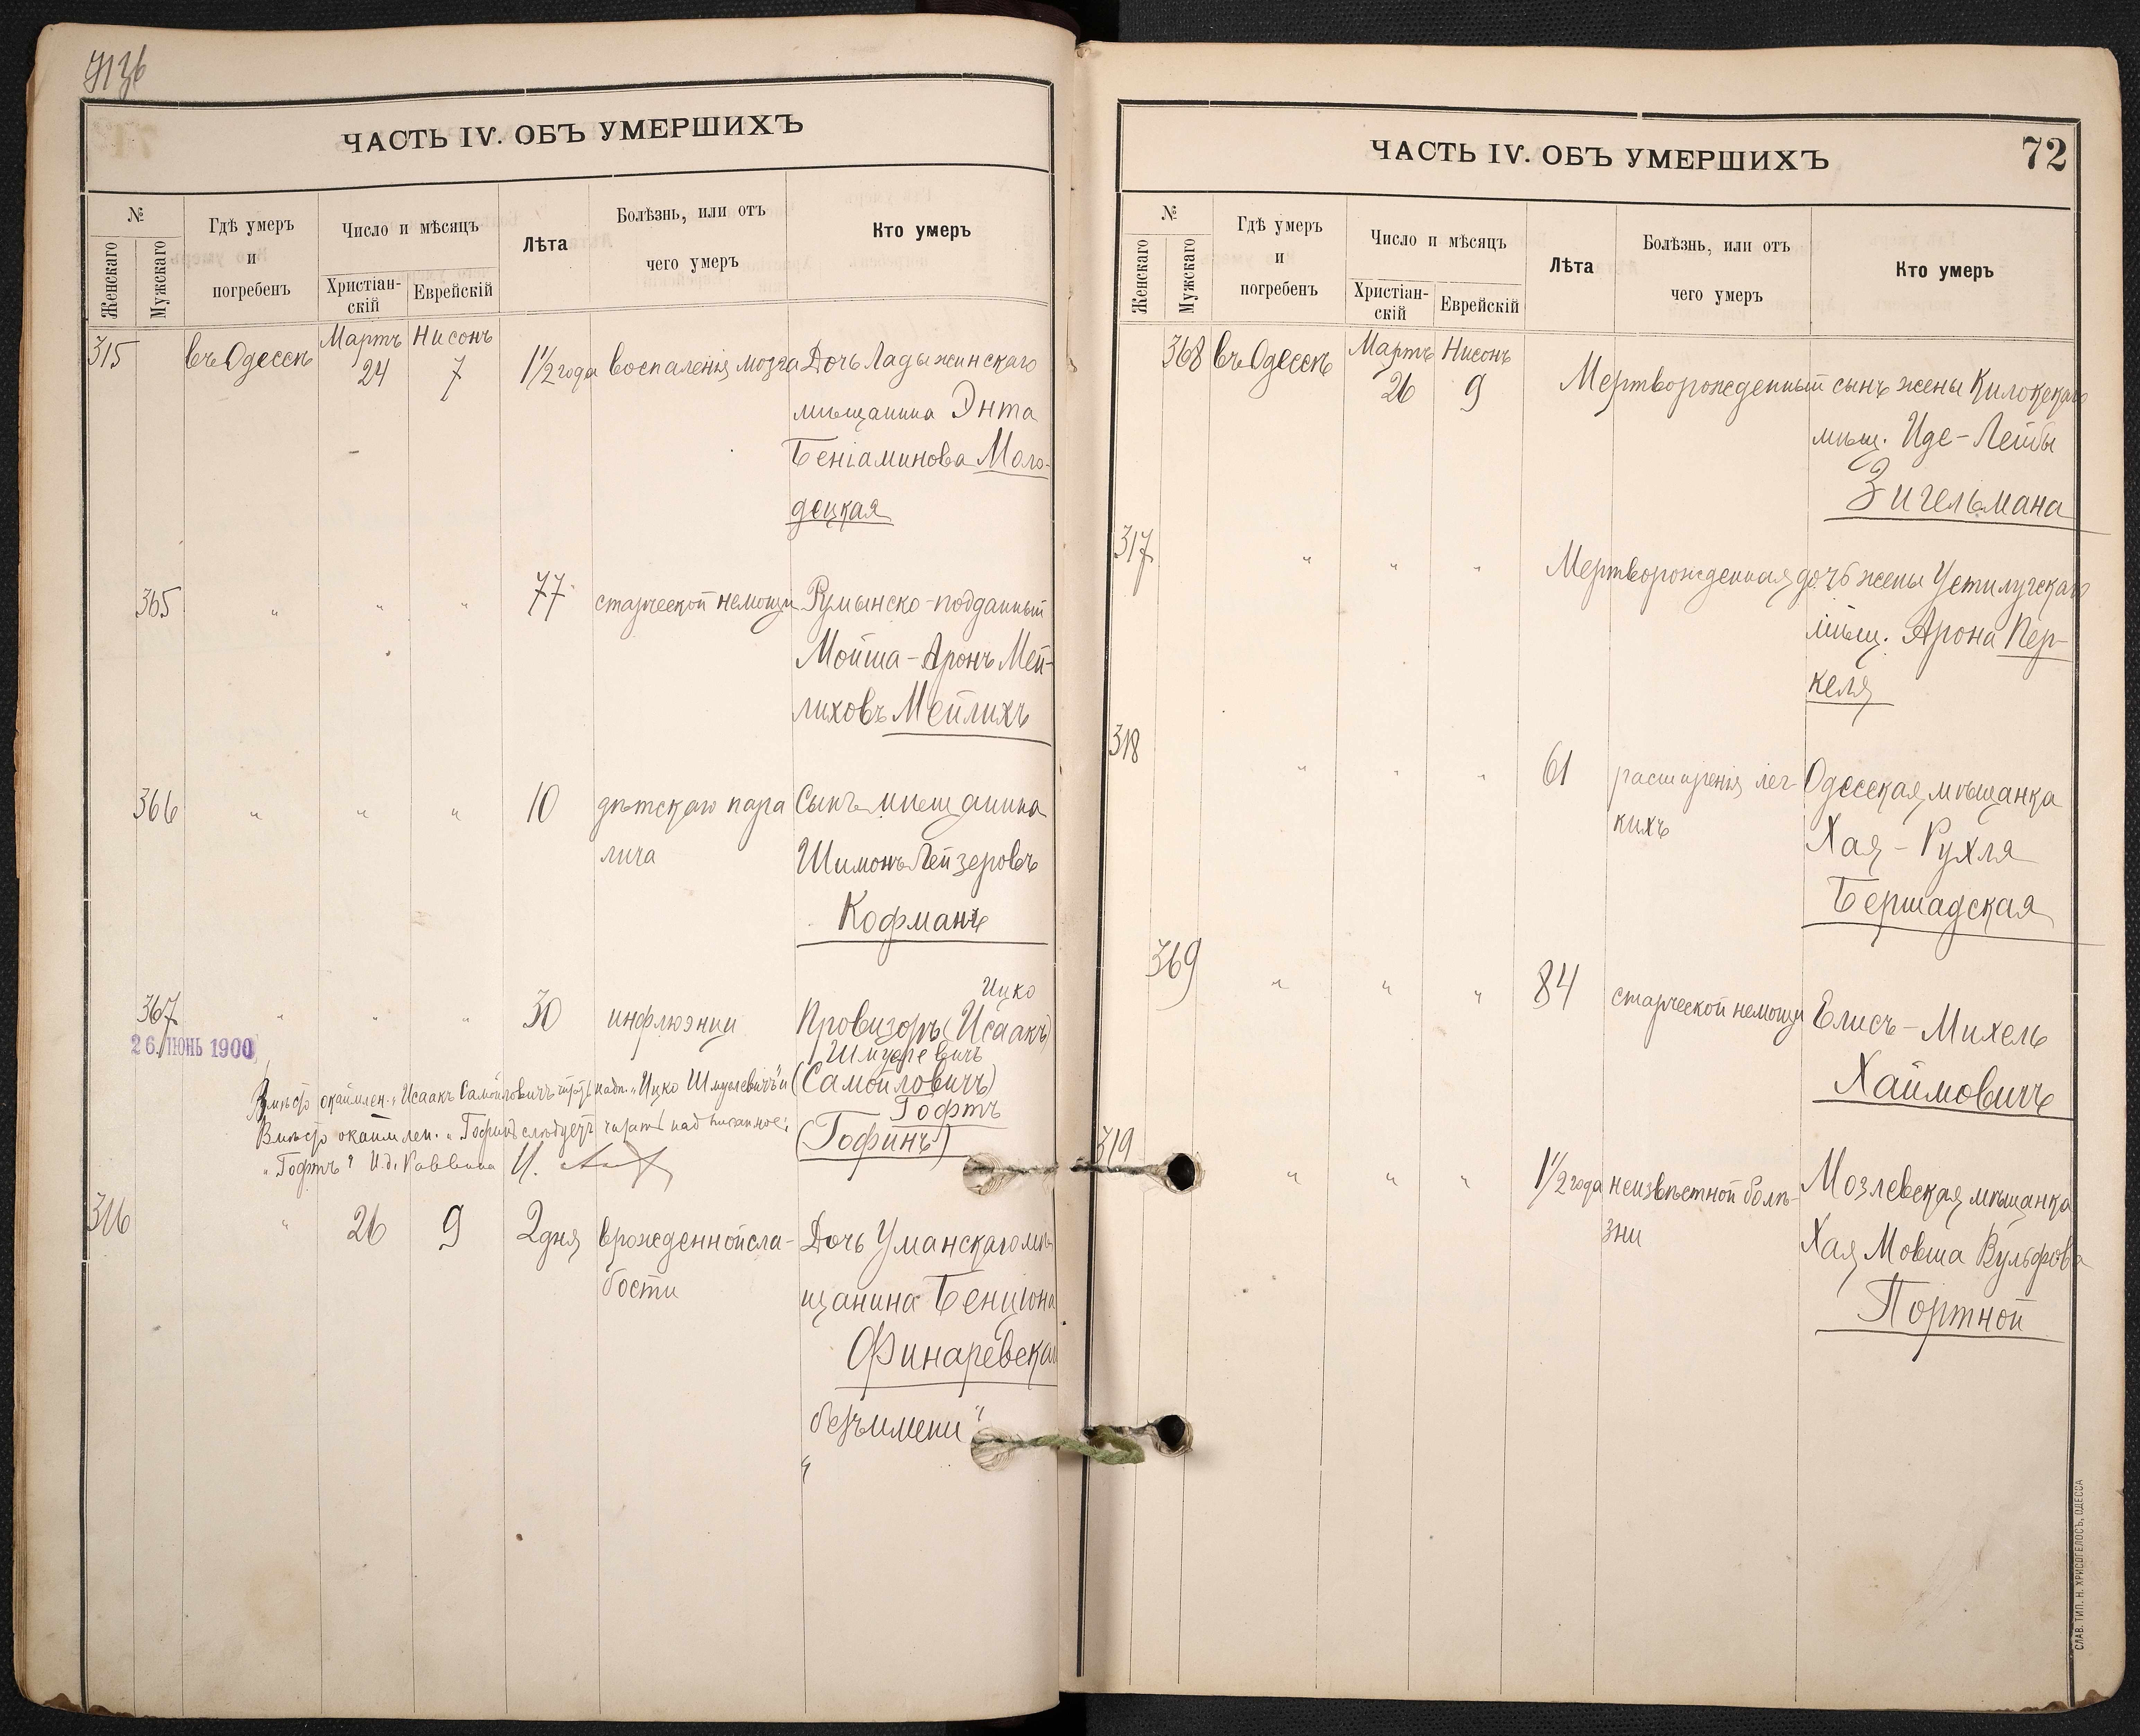 7136
ЧАСТЬ IV. ОБЪ УМЕРШИХЪ
№
Женскаго
Мужскаго
Гдѣ умеръ
и
погребенъ
Число и мѣсяцъ
Христіан-
скій
Еврейскій
Лѣта
Болѣзнь, или отъ
чего умеръ
Кто умеръ
315 въ Одессѣ Мартъ 24 Нисонъ 7 1½ года воспаленія мозга Дочь Ладыжинскаго
мѣщанина Энта
Беніаминова Моло-
децкая
365 " " " 77 старческой немощи Румынско-подданный
Мойша-Аронъ Мей-
лиховъ Мейлихъ
366 " " " 10 дѣтскаго пара Сынъ мѣщанина
лича Шимонъ Лейзеровъ
Кофманъ
Ицко
367 " " " 30 инфлюэнци Провизоръ (Исаакъ)
26 ІЮНЬ 1900
Шмулевичъ
(Самойловичъ)
Гофтъ
(Гофинъ)
Вмѣсто окаймлен. "Исаакъ Самойловичъ" надп. "Ицко Шмулевичъ" и
Вмѣсто окаймлен. "Гофинъ" слѣдуетъ читать надписанное:
"Гофтъ" И.д. Раввина
316 " 26 9 2 дня врожденной сла- Дочь Уманскаго мѣ-
бости щанина Бенціона
Финаревская
безъимени"
"
ЧАСТЬ IV. ОБЪ УМЕРШИХЪ
72
№
Женскаго
Мужскаго
Гдѣ умеръ
и
погребенъ
Число и мѣсяцъ
Христіан-
скій
Еврейскій
Лѣта
Болѣзнь, или отъ
чего умеръ
Кто умеръ
368 въ Одессѣ Мартъ 26 Нисонъ 9 Мертворожденный сынъ жены
мѣщ. Иде-Лейбы
Зигельмана
317 " " " Мертворожденная дочь жены Устилугскаго
мѣщ. Арона Пер-
келя
318 " " " 61 расширенія лег- Одесская мѣщанка
кихъ Хая-Рухля
Бершадская
369 " " " 84 старческой немощи Елисъ-Михель
Хаймовичъ
319 " " " 1½ года неизвѣстной болѣ- Мозлевская мѣщанка
зни Хая Мовша Вульфова
Портной
СЛАВ. ТИП. Н. ХРИСОГЕЛОСЪ, ОДЕССА